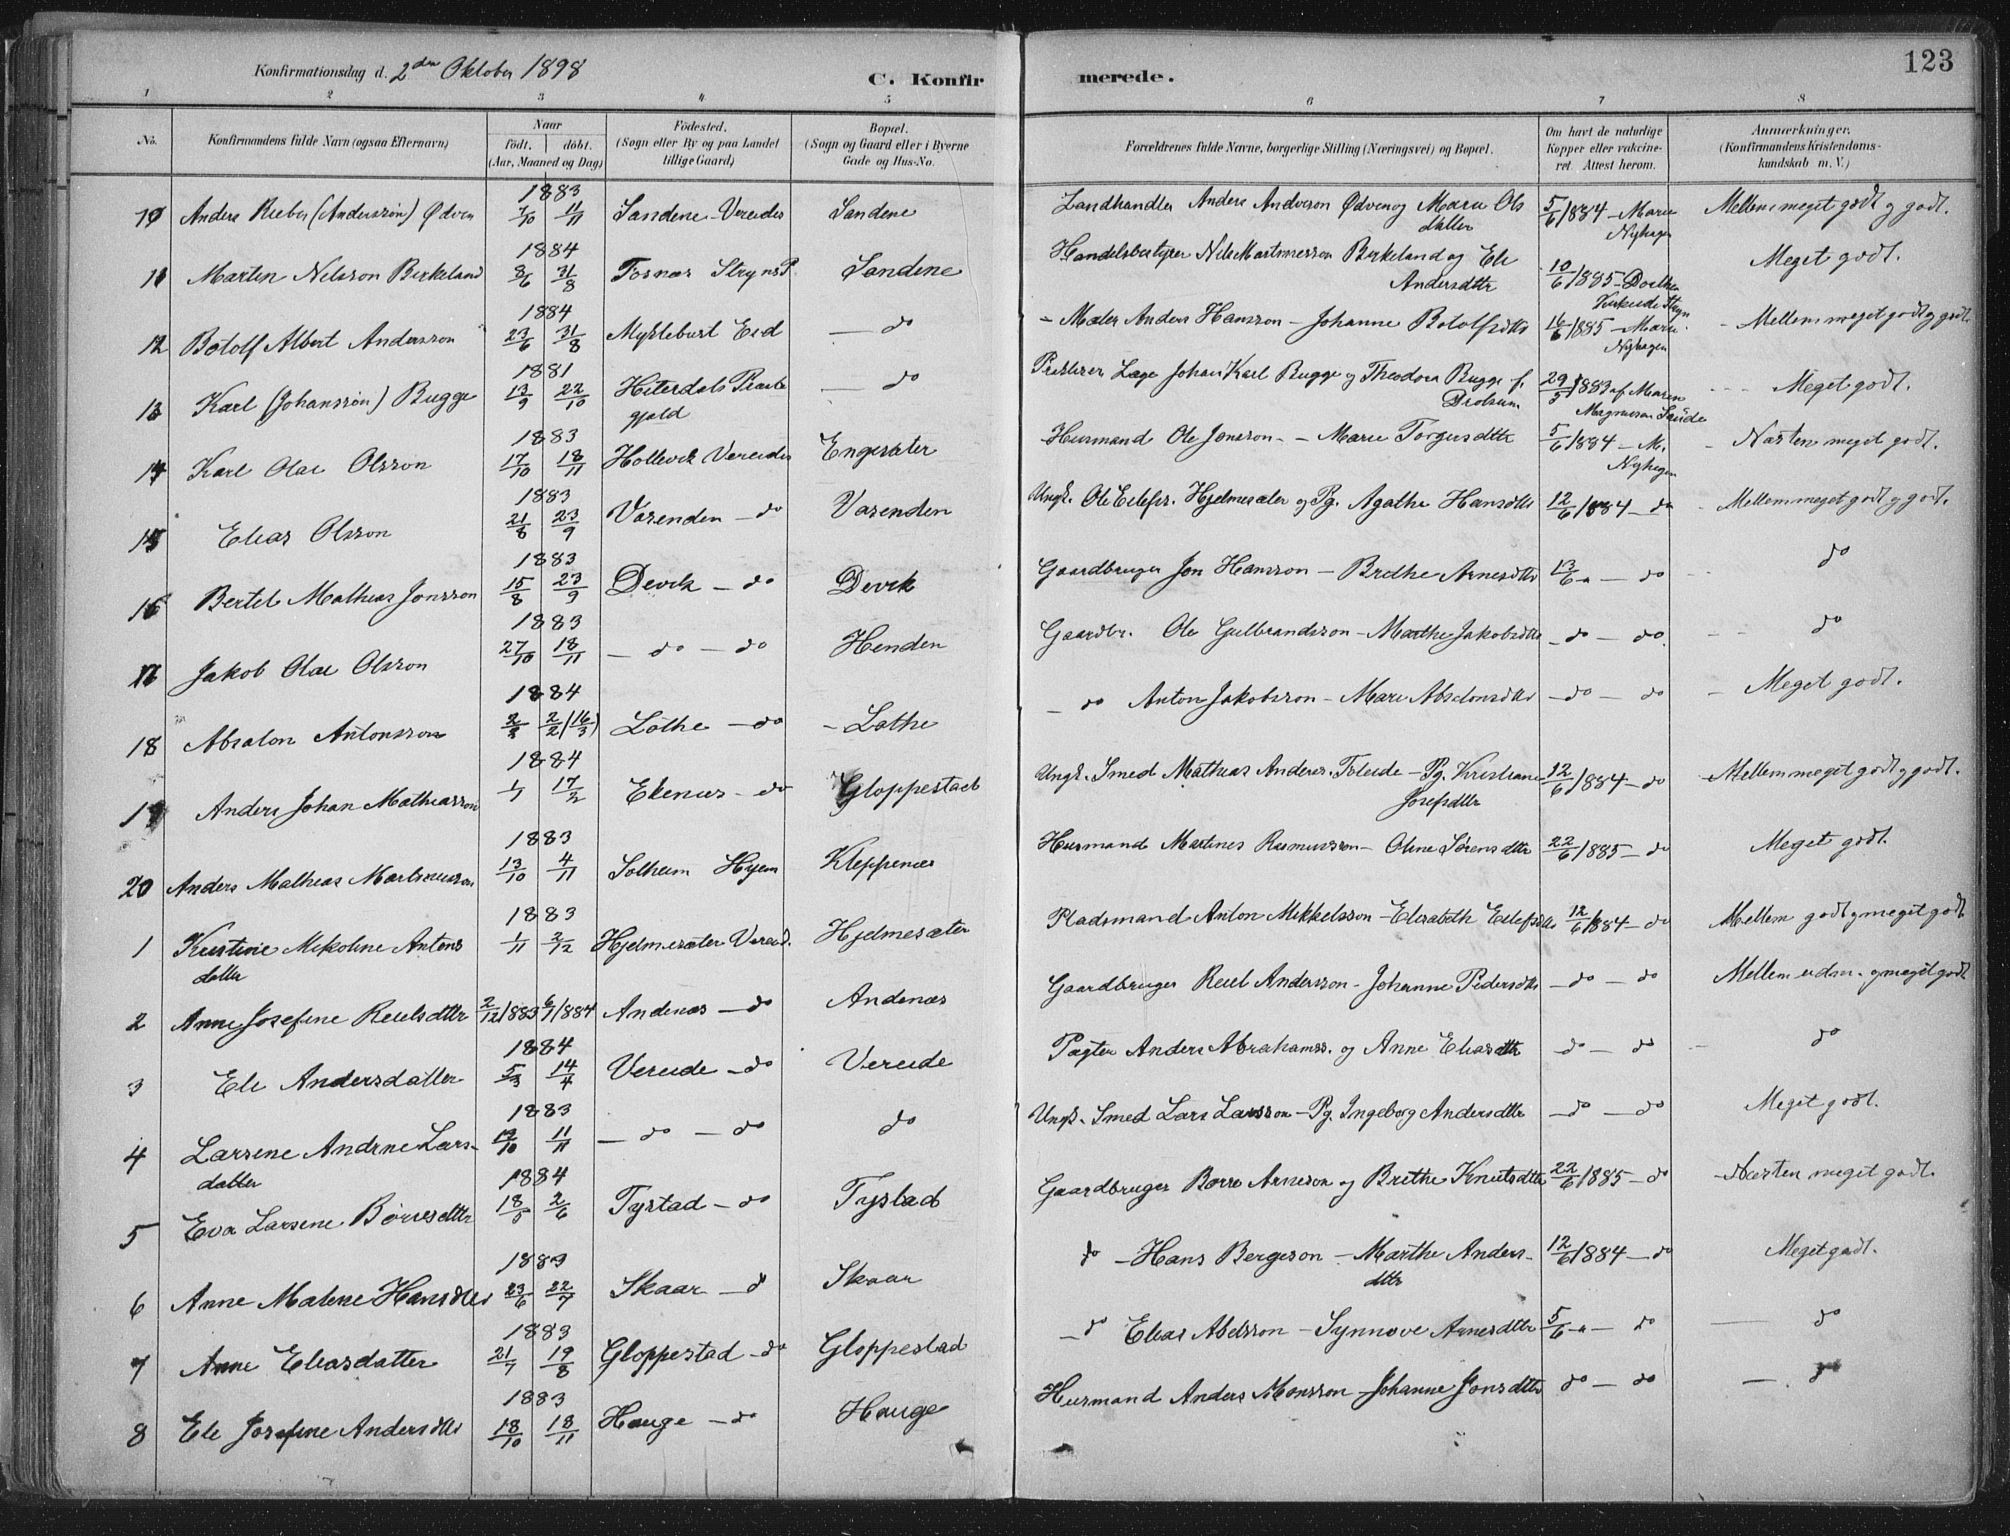 Konfirmationsdag d. 2den Oktober 1898
C. Konfir merede.
123
1 2 3 4 5 6 7 8
No. Konfirmandens fulde Navn (ogsaa Efternavn) Naar født. døbt. (Aar, Maaned og Dag) Fødested. (Sogn eller By og paa Landet tillige Gaard) Bopæl. (Sogn og Gaard eller i Byerne Gade og Hus-No. Forældrenes fulde Navne, borgerlige Stilling (Næringsvei) og Bopæl. Om havt de naturlige Kopper eller vakcineret. Attest herom. Anmærkninger. (Konfirmandens Kristendomskundskab m. V.)
1883
Anders Rieber (Anderssøn) Ødven 7/10 11/11 Sandene - Vereides Sandene Landhandler Anders Andersson Ødven og Marie Olsdatter 5/6 1884 - Marie Nyhagen Mellem meget godt og godt.
1884
11 Martin Nelsson Birkeland 8/6 31/8 Tosnæs Stryns P. Sandene Handelsbestyrer Nils Martinusson Birkeland og Eli Andersdttr 10/6 1885 - Dorthea Meget godt.
1884
12 Botolf Albert Andersson 23/6 31/8 Myklebust Eid — do - Maler Anders Hansson - Johanne Botolfsdttr 16/6 1885 - Marie Nyhagen - Mellem meget godt og godt.
1881
13 Karl (Johanssøn) Bugge 13/9 22/10 Hiterdals Præstegjæld — do Læge Johan Karl Bugge og Theodora Bugge f. Drolsum 29/5 1883 af Maren Magnusson Meget godt.
1883
14 Karl Olai Olsson 17/10 18/11 Hollevik Vereides Engesæter Husmand Ole Jonsson - - Marie Torgersdttr 5/6 1884 - M. Nyhagen - Næsten meget godt.
1883
15 Elias Olsson 21/8 23/9 Vasenden - do Vasenden Ungk. Ole Eilefss. Hjelmesæter og Pg. Agathe Hansdttr 12/6 1884 - do - Mellem meget godt og godt.
1883
16 Bertel Mathias Jonsson 15/8 23/9 Devik - do Devik Gaardbruger Jon Hansson - Brethe Arnesdttr 13/6 " - do do
1883
17 Jakob Olai Olsson 27/10 18/11 - do - do Henden Gaardbr. Ole Gulbrandsson - Marthe Jakobsdttr - do - do do
1884
18 Absalon Antonsson 2/2 2/2 (16/3) Løthe - do - Løthe - do Anton Jakobsson - Mari Absalonsdttr - do - do - Meget godt.
1884
19 Anders Johan Mathiasson 1/1 17/2 Ekenæs - do Gloppestad Ungk. Smed Mathias Anderss. - Pg. Kristiane Josefsdttr 12/6 1884 - do - Mellem meget godt og godt.
1883
20 Anders Mathias Martinusson 13/10 4/11 Solheim Hyen Kleppenæs Husmand Martines Rasmusson - Oline Sørensdttr 22/6 1885 - do Meget godt.
1883
1 Kristine Mikoline Antonsdatter 1/11 2/12 Hjelmesæter Vereid. Hjelmesæter Pladsmand Anton Mikkelsson - Elisabeth Eilefsdttr 12/6 1884 - do Mellem godt og meget godt
2 Anne Josefine Reielsdttr 2/12 1883 6/1 1884 Andenæs - do Andenæs Gaardbruger Reiel Andersson - Johanne Pedersdttr - do - do Mellem udm. og meget godt
1884
3 Eli Andersdatter 5/3 14/4 Vereide - do Vereide Pagter Anders Abrahamss. og Anne Eliasdttr - do - do - do
1883
4 Larsine Andrine Larsdatter 13/10 11/11 - do - do do Ungk. Smed Lars Larsson - Pg. Ingeborg Andersdttr - do - do Meget godt.
1884
5 Eva Larsine Børresdttr 18/5 2/6 Tystad - do Tystad Gaardbruger Børre Arneson og Brithe Knutsdttr 22/6 1885 - do - Næsten meget godt.
1883
6 Anne Malene Hansdttr 23/6 22/7 Skaar - do Skaar do - Hans Bergeson - Marthe Andersdttr 12/6 1884 - do Meget godt.
1883
7 Anne Eliasdatter 21/7 19/8 Gloppestad - do Gloppestad - do Elias Abelsson - Synnøve Arnesdttr 5/6 " - do — do
1883
8 Eli Josefine Andersdttr 18/10 18/11 Hauge - do Hauge Husmand Anders Monsson - Johanne Jonsdttr do - do - do